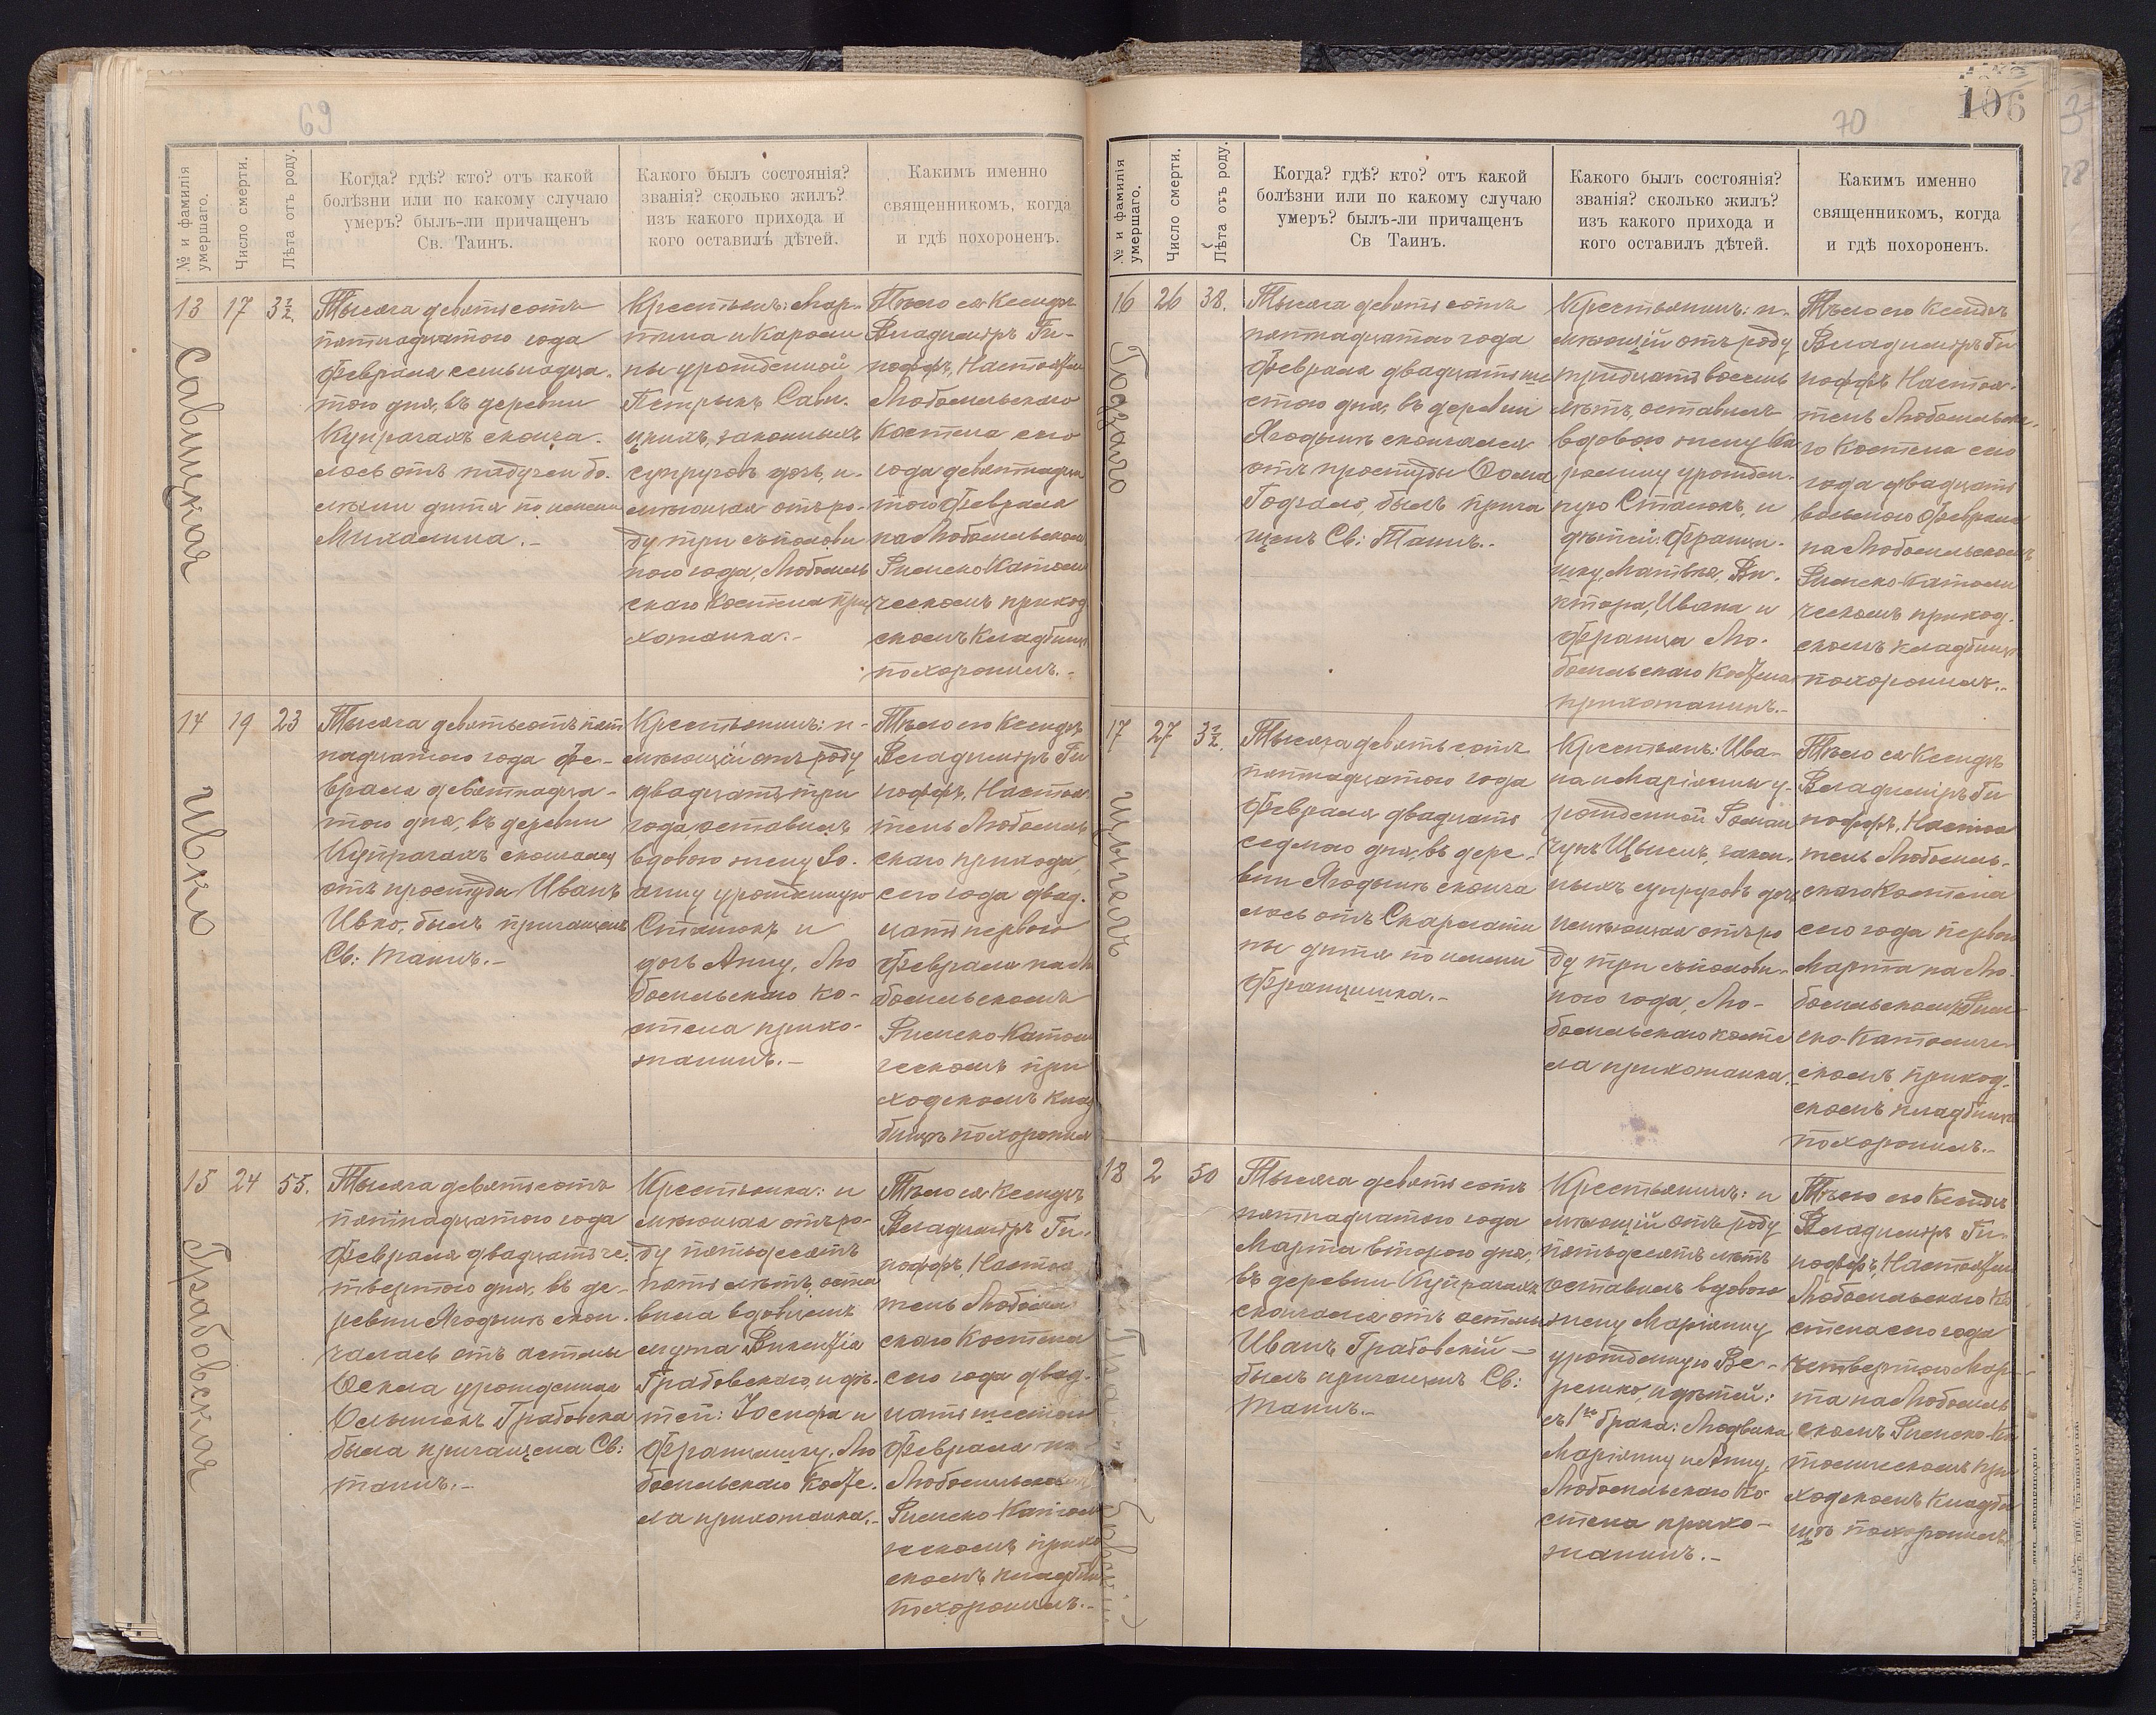 69
№ и фамилія умершаго.
Число смерти.
Лѣта отъ роду.
Когда? гдѣ? кто? отъ какой
болѣзни или по какому случаю
умеръ? былъ-ли причащенъ
Св. Таинъ.
Какого былъ состоянія?
званія? сколько жилъ?
изъ какого прихода и
кого оставилъ дѣтей.
Какимъ именно
священникомъ, когда
и гдѣ похороненъ.
13
17
3½.
Савицкая
Тысяча девятьсотъ
пятнадцатого года
Февраля семьнадца-
того дня, въ деревни
Купрачахъ сконча-
лось отъ падучей бо-
лѣзни дитя по имени
Михалина.-
Крестьянъ: Мар-
тина и Кароли
ны урожденной
Петрыкъ Сави-
цкихъ, законныхъ
супруговъ дочь, и-
мѣющая отъ ро-
ду три съ полови
ного года, Любомль
скаго Костела при
хожанка.-
Тѣло ея Ксендзъ
Владиміръ Ги-
поффъ, Настоятель
Любомльскаго
Костела сего
года девятнадца
того Февраля
на Любомльскомъ
Римско Католи
ческомъ приход
скомъ Кладбищѣ
похоронилъ.-
14
19
23
Ивко
Тысяча девятьсотъ пят
надцатого года Фе-
враля девятнадца-
того дня, въ деревни
Купрачахъ скончался
отъ простуды Иванъ
Ивко, былъ причащенъ
Св: Таинъ.-
Крестьянинъ: и-
мѣющій отъ роду
двадцать три
года оставилъ
вдовою жену Іо-
анну урожденную
Сташокъ и
дочь Анну, Лю
бомльскаго Ко-
стела прихо-
жанинъ.-
Тѣло его Ксендзъ
Владиміръ Ги
поффъ, Настоя-
тель Любомль
скаго прихода,
сего года двад-
цать первого
Февраля на Лю
бомльскомъ
Римско-Католи
ческомъ при
ходскомъ Клад
бищѣ похоронилъ
15
24
55.
Грабовская
Тысяча девятьсотъ
пятнадцатого года
Февраля двадцать че-
твертого дня, въ де-
ревни Ягодынѣ скон-
чалась отъ астмы
Фекла урожденная
Грабовска
была причащена Св:
таинъ.-
Крестьянка: и
мѣющая отъ ро-
ду пятьдесятъ
пять лѣтъ, оста
вила вдовцемъ
мужа Викентія
Грабовскаго, и дѣ-
тей: Іосифа и
Францишку, Лю
бомльскаго Косте-
ла прихожанка.-
Тѣло ея Ксендзъ
Владиміръ Ги-
поффъ, Настоя
тель Любомль
скаго Костела
сего года двад-
цать шестого
Февраля на
Любомльскомъ
Римско Католи
ческомъ приход
скомъ кладбищѣ
похоронилъ.-
70
106
№ и фамилія умершаго.
Число смерти.
Лѣта отъ роду.
Когда? гдѣ? кто? отъ какой
болѣзни или по какому случаю
умеръ? былъ-ли причащенъ
Св Таинъ.
Какого былъ состоянія?
званія? сколько жилъ?
изъ какого прихода и
кого оставилъ дѣтей.
Какимъ именно
священникомъ, когда
и гдѣ похороненъ.
16
26
38.
Тысяча девятьсотъ
пятнадцатого года
Февраля двадцать ше
стого дня, въ деревни
Ягодынѣ скончался
отъ простуды Фома
былъ прича
щенъ Св: Таинъ.-
Крестьянинъ: и-
мѣющій отъ роду
тридцать восемь
лѣтъ, оставилъ
вдовою жену Ка
ролину урожден-
ную Сташокъ, и
дѣтей: Франци-
шку, Матвѣя, Ви-
ктора, Ивана и
Франца Лю-
бомльскаго Костела
прихожанинъ.-
Тѣло его Ксендзъ
Владиміръ Ги
поффъ Настоя-
тель Любомльска-
го Костела сего
года двадцать
восьмого Февраля
на Любомльскомъ
Римско-Католи
ческомъ приход-
скомъ кладбищѣ
похоронилъ.-
17
27
3½.
Щыгелъ
Тысяча девятьсотъ
пятнадцатого года
Февраля двадцать
седмого дня, въ дере-
вни Ягодынѣ сконча
лось отъ Скарлати
ны дитя по имени
Францишка.-
Крестьянъ: Ива-
на и Маріянны у-
рожденной Роман
чукъ закон-
ныхъ супруговъ дочь
имѣющая отъ ро
ду три съ полови-
ного года, Лю-
бомльскаго косте
ла прихожанка.
Тѣло ея Ксендзъ
Владиміръ Ги
поффъ, Настоя
тель Любомль-
скаго Костела
сего года первого
Марта на Лю-
бомльскомъ Рим-
ско-Католиче-
скомъ приход-
скомъ кладбищѣ
похоронилъ.-
18
2
50
Тысяча девятьсотъ
пятнадцатого года
Марта второго дня,
въ деревни Купрачахъ
скончался отъ астмы
Иванъ Грабовскій -
былъ причащенъ Св:
Таинъ.-
Крестьянинъ: и
мѣющій отъ роду
пятьдесятъ лѣтъ
оставилъ вдовою
жену Маріянну
урожденную Ве-
решко, и дѣтей:
съ 1го брака: Людвика
Маріянну и Анну,
Любомльскаго Ко-
стела прихо-
жанинъ.-
Тѣло его Ксендзъ
Владиміръ Ги-
поффъ, Настоятель
Любомльскаго Ко
стела сего года
четвертого Мар-
та на Любомль
скомъ Римско-Ка
толическомъ при
ходскомъ Кладби
щѣ похоронилъ.